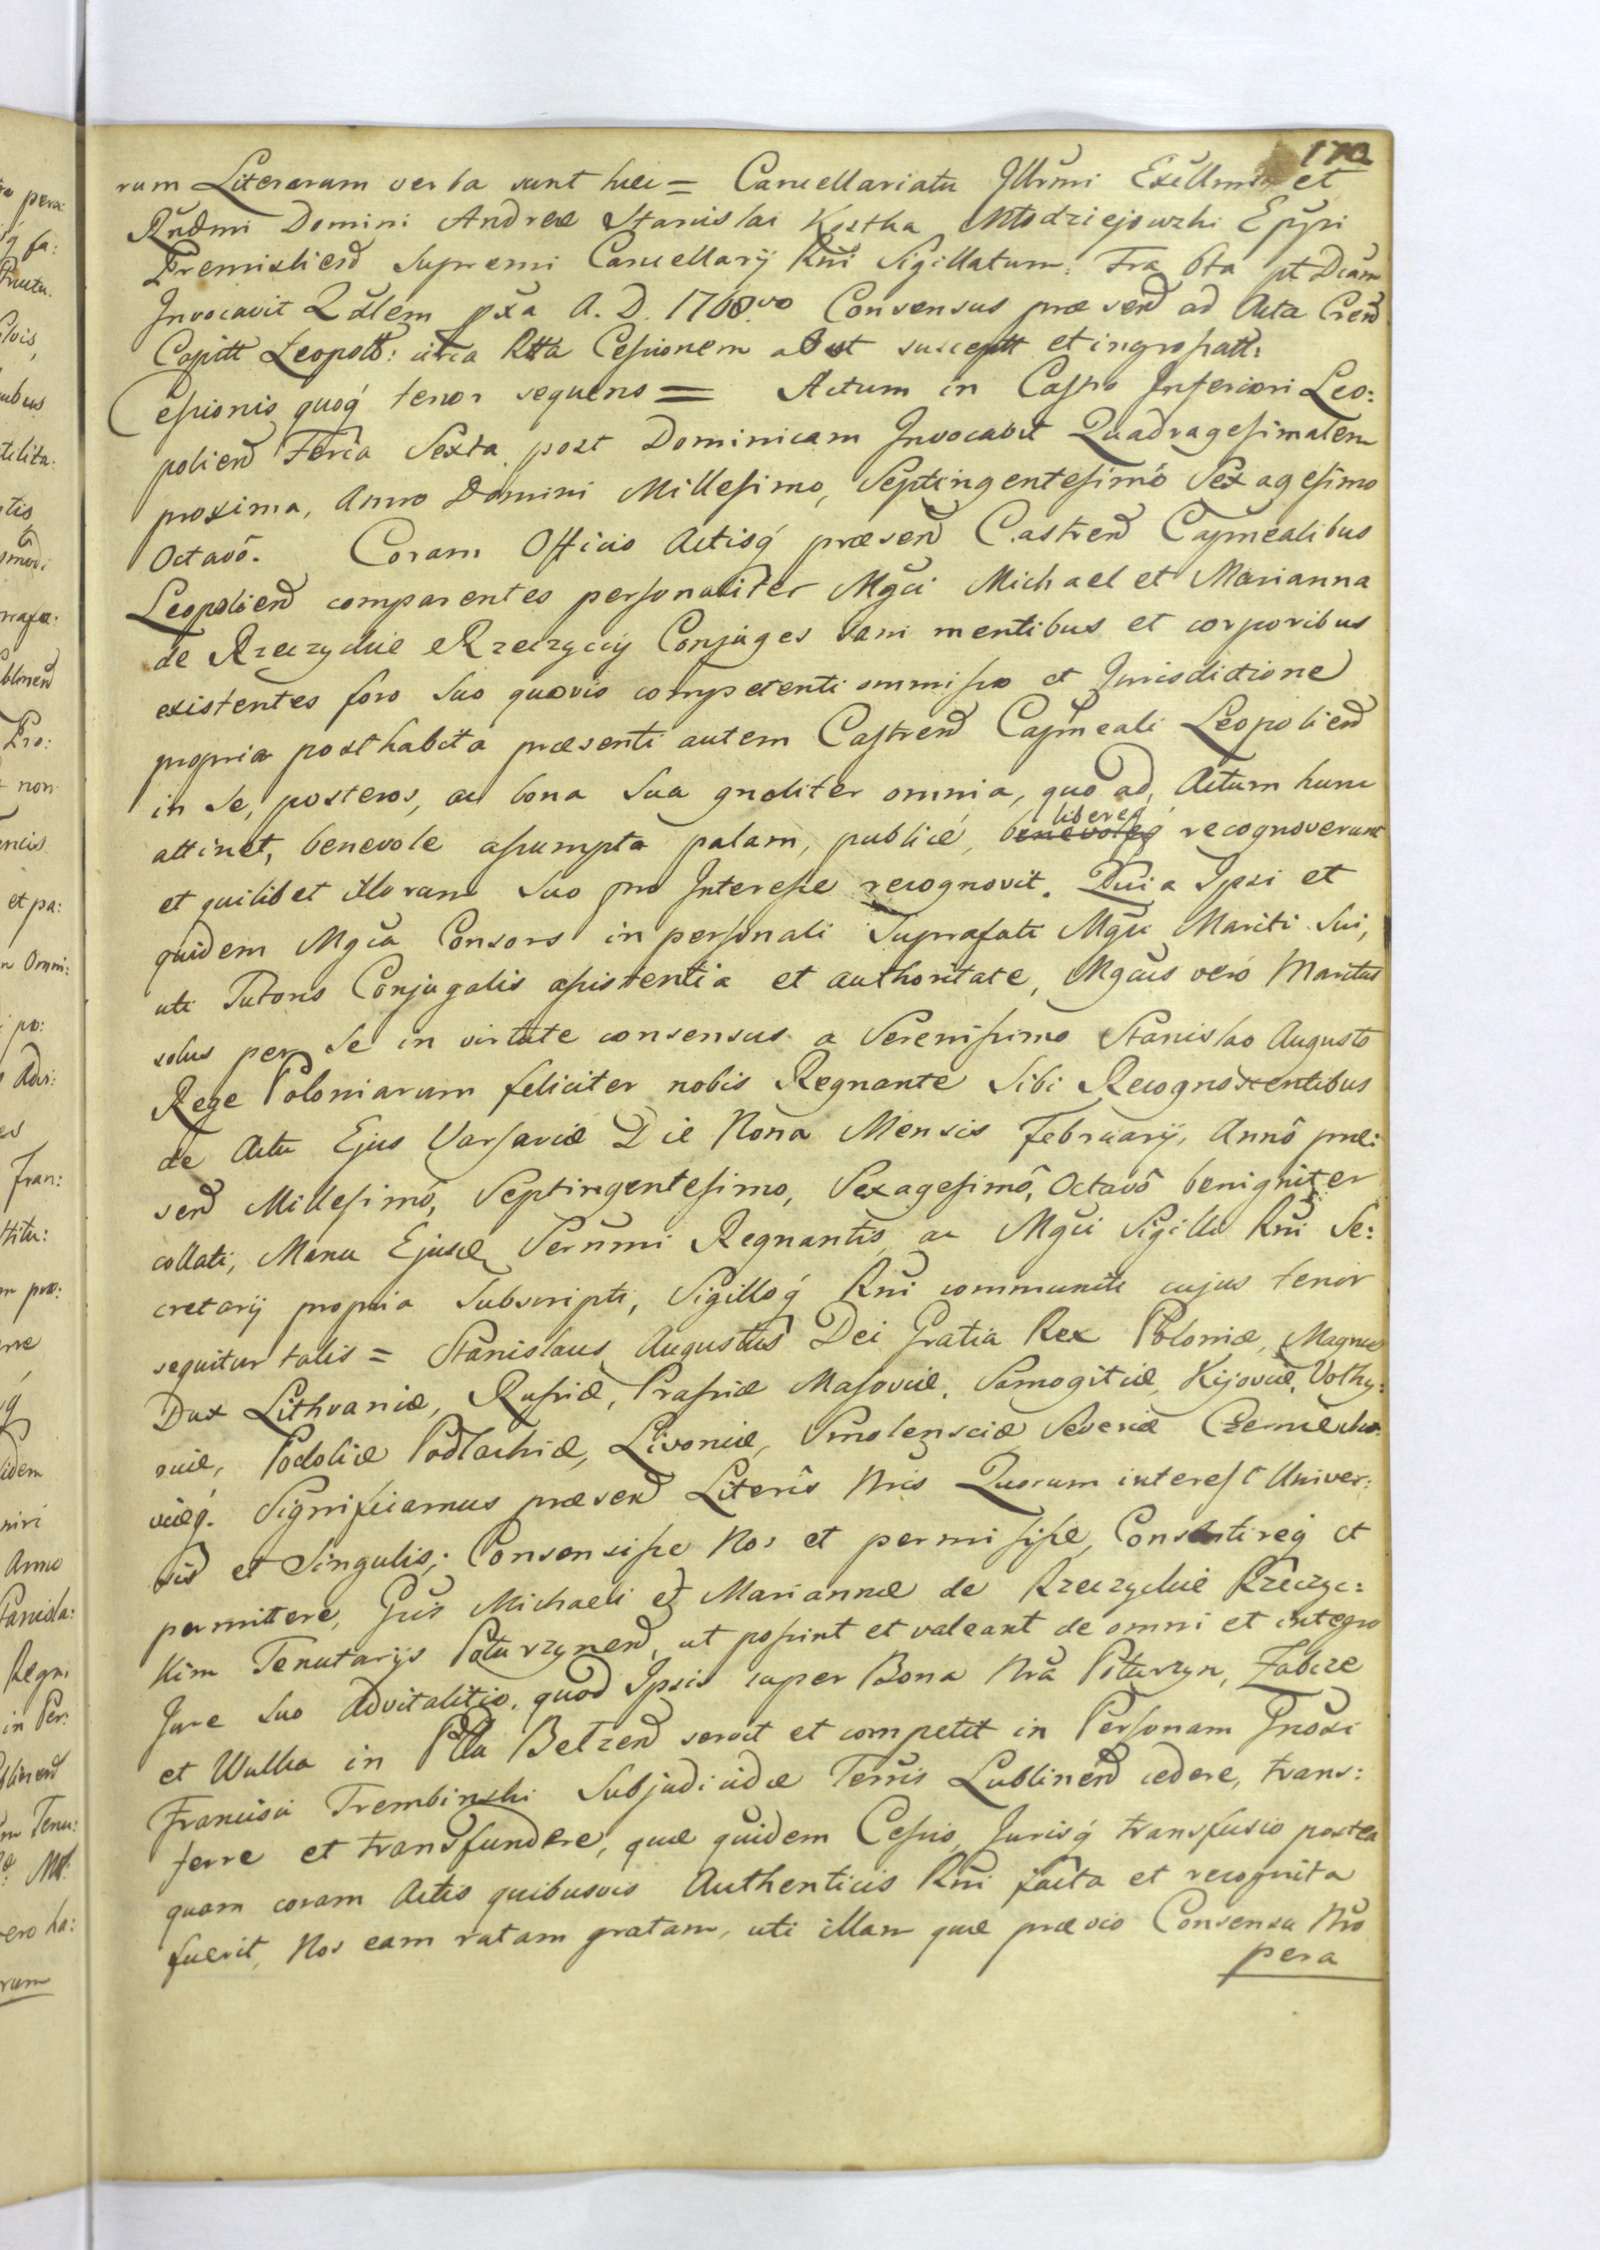 170
rum Literarum verba sunt haec = Cancellariatu Illrmi Excellmi et
Rndmi Domini Andreae Stanislai Kostka Młodziejowski Eppi
Premislien Supremi Cancellarij Rni Sigillatum. Fra 6ta pt Dcam
Invocavit Qdlem pxa A. D. 1768vo Consensus praesen ad Acta Cren
Capitt Leopold: circa Rtta Cessionem abest susceptt et ingrossatt:
Cessionis quoq́ tenor sequens = Actum in Castro Inferiori Leo:
polien Feria Sexta post Dominicam Invocabit Quadragesimalem
proxima, Anno Domini Millesimo, Septingentesimo Sexagesimo
Octavo. Coram Officio Actisq́ praesen Castren Capnealibus
Leopolien comparentes personaliter Mgci Michael et Marianna
de Rzeczyckie Rzeczyccy Conjuges sani mentibus et corporibus
existentes foro suo quovis competenti ommisso et Jurisdictione
propria posthabita praesenti autem Castren Capneali Leopolien
in se, posteros, ac bona sua gnaliter omnia, quo ad Actum hunc
attinet, benevole assumpta palam, publice, benevoleq́ libereq́ recognoverunt
et quilibet illorum suo pro Interesse recognovit. Quia Ipsi et
quidem Mgca Consors in personali suprafati Mgci Mariti sui,
uti Tutoris Conjugalis assistentia et authoritate, Mgcus vero Maritus
solus per se in virtute consensus a Serenissimo Stanislao Augusto
Rege Poloniarum feliciter nobis Regnante sibi Recognoscentibus
de Actu Ejus Varsaviae Die Nona Mensis February, Anno prae:
sen Millesimo, Septingentesimo, Sexagesimo, Octavo benigniter
collati, Manu Ejusd Serenmi Regnantis ac Mgci Sigilli Rni Se:
cretarij propria subscripti, Sigilloq́ Rni communiti cujus tenor
sequitur talis = Stanislaus Augustus Dei Gratia Rex Poloniae, Magnus
Dux Lithvaniae, Russiae, Prussiae Masoviae, Samogitiae, Kijoviae, Volhy:
niae, Podoliae Podlachiae, Livoniae, Smolensciae Severiae Czerniecho
viaeq́. Significamus praesen Literis Nris Quorum interest Univer:
sis et Singulis; Consensisse Nos et permisisse, Consentireq́ et
permittere, Gsis Michaeli et Mariannae de Rzeczyckie Rzeczyc:
kim Tenutarijs Poturzynen, ut possint et valeant de omni et integro
Jure suo advitalitio, quod Ipsis super Bona Nra Poturzyn, Zabcze
et Wulka in Pttu Belzen servit et competit in Personam Gnosi
Francisci Trembinski Subjudicidae Terris Lublinen cedere, trans:
ferre et transfundere, quae quidem Cessio, Jurisq́ transfusio postea
quam coram Actis quibusvis Authenticis Rni facta et recognita
fuerit, Nos eam ratam gratam, uti illam quae praevio Consensu Nro
pera